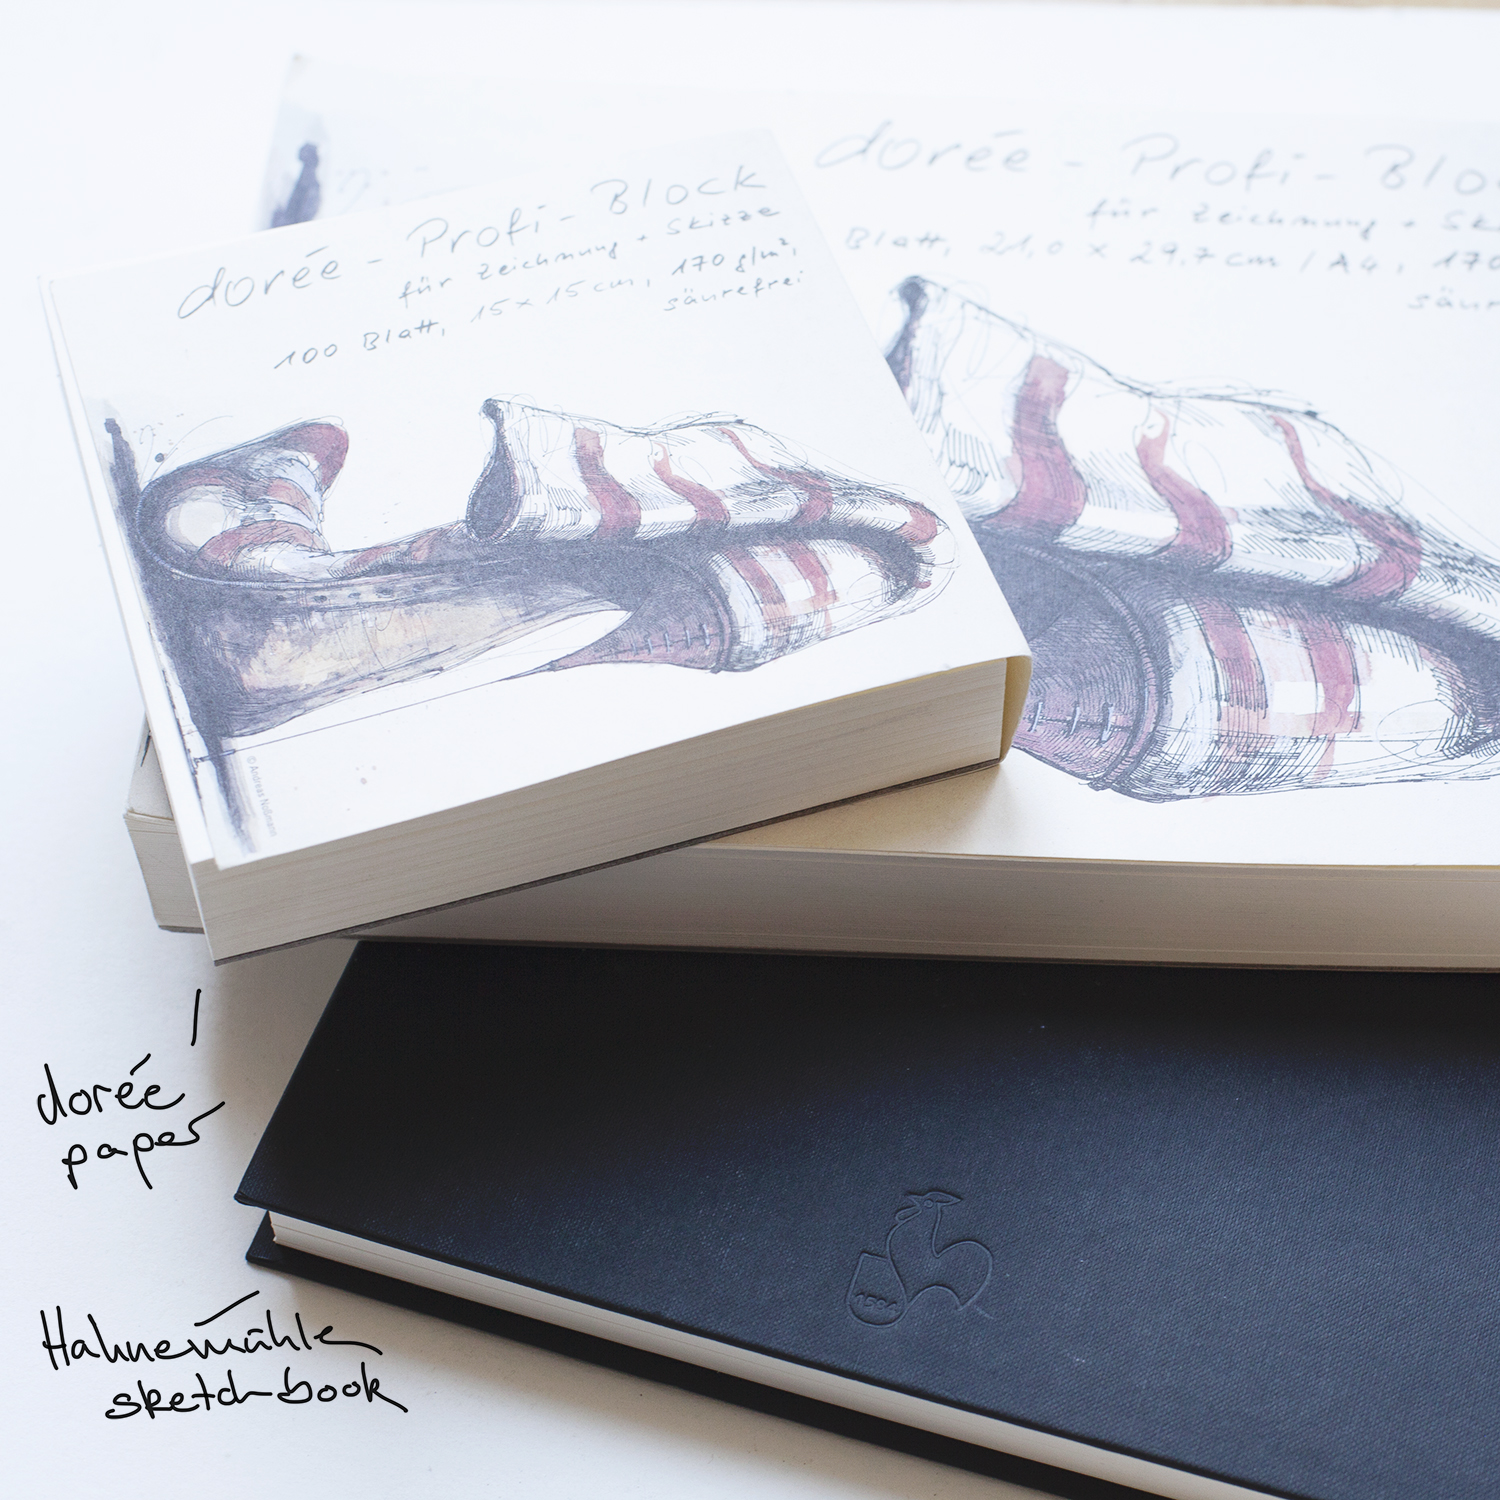 dorée - Profi - Block
für Zeichnung + Skizze
100 Blatt, 15 x 15 cm, 170 g/m²,
säurefrei
© Andreas Noßmann
dorée - Profi - Blo
für Zeichnung + Sk
Blatt, 21,0 x 29,7 cm / A4, 170
säur
dorée
paper
1584
Hahnemühle
sketchbook